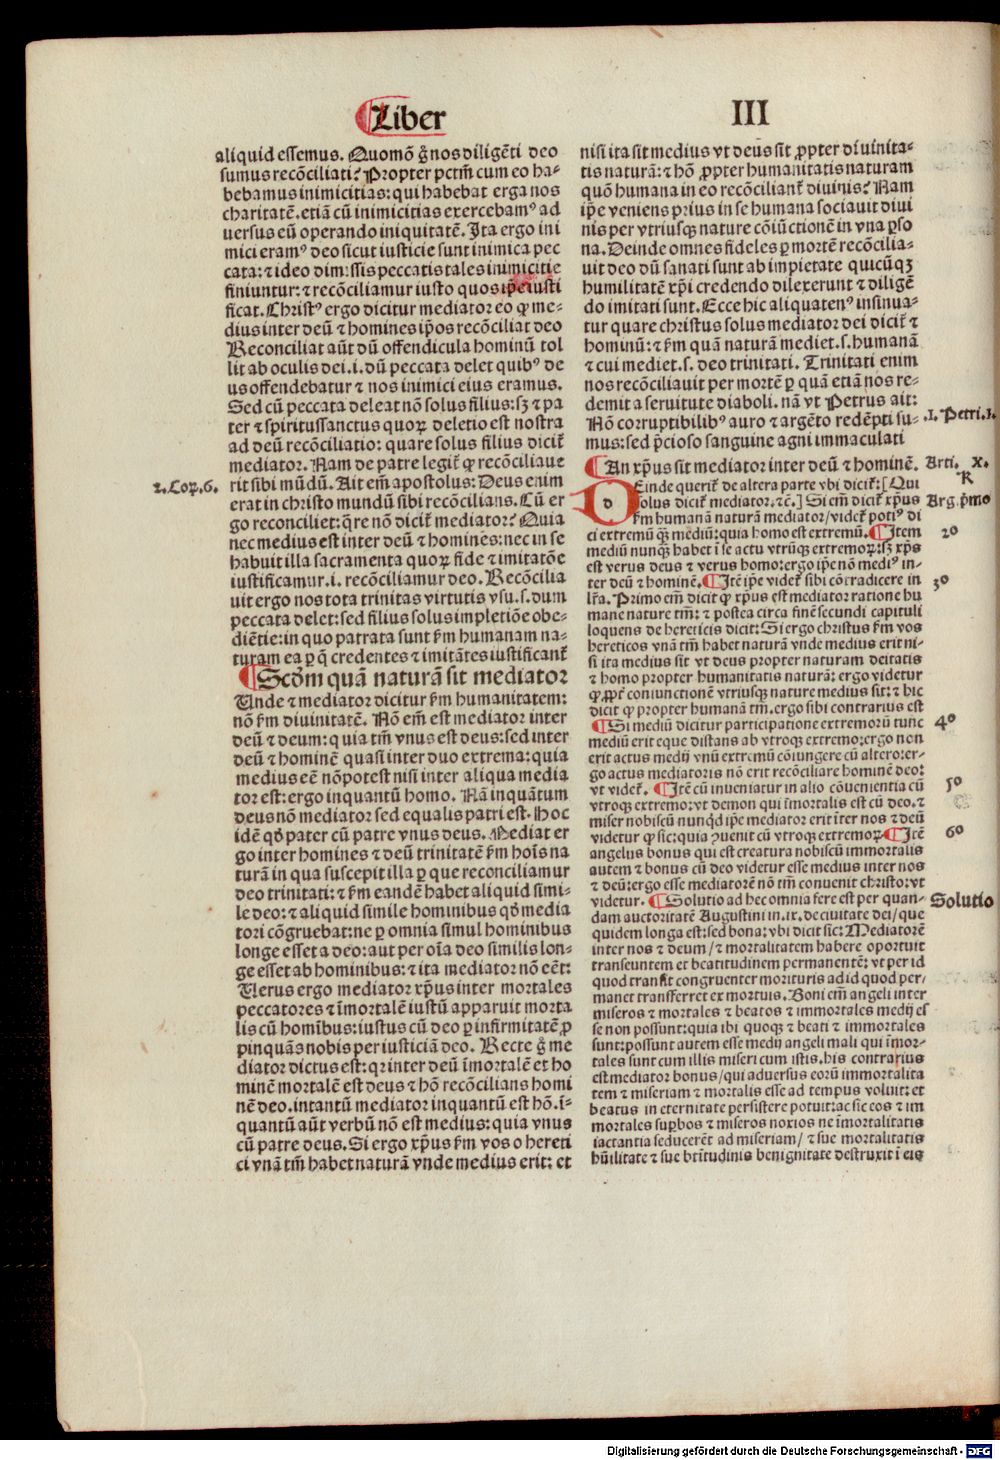 Liber
III
aliquid essemus. Quomō g̃ nos diligēti deo
sumus recōciliati? Propter pctm̄ cum eo ha-
bebamus inimicitias: qui habebat erga nos
charitatē. etiā cū inimicitias exercebamꝰ ad
uersus eū operando iniquitatē. Ita ergo ini
mici eramꝰ deo sicut iusticie sunt inimica pec
cata: ⁊ ideo dimissis peccatis tales inimicitie
finiuntur: ⁊ recōciliamur iusto quos ip̄e iusti
ficat. Christꝰ ergo dicitur mediator eo ꝙ me-
dius inter deū ⁊ homines ip̄os recōciliat deo
Reconciliat aūt dū offendicula hominū tol
lit ab oculis dei .i. dū peccata delet quibꝰ de
us offendebatur ⁊ nos inimici eius eramus.
Sed cū peccata deleat nō solus filius: sꝫ ⁊ pa
ter ⁊ spiritussanctus quoꝝ deletio est nostra
ad deū recōciliatio: quare solus filius dicit̃
mediator. Nam de patre legit̃ ꝙ recōciliaue
2. Coꝝ. 6.
rit sibi mūdū. Ait em̄ apostolus: Deus enim
erat in christo mundū sibi recōcilians. Cū er
go reconciliet: q̄re nō dicit̃ mediator? Quia
nec medius est inter deū ⁊ homines: nec in se
habuit illa sacramenta quoꝝ fide ⁊ imitatōe
iustificamur .i. recōciliamur deo. Recōcilia
uit ergo nos tota trinitas virtutis vsu .s. dum
peccata delet: sed filius solus impletiōe obe-
diētie: in quo patrata sunt ẜm humanam na-
turam ea ꝑ q̄ credentes ⁊ imitātes iustificant̃
¶ Scd̄m quā naturā sit mediator
Unde ⁊ mediator dicitur ẜm humanitatem:
nō ẜm diuinitatē. Nō em̄ est mediator inter
deū ⁊ deum: quia tm̄ vnus est deus: sed inter
deū ⁊ hominē quasi inter duo extrema: quia
medius eē nō potest nisi inter aliqua media
tor est: ergo inquantū homo. Nā inquātum
deus nō mediator sed equalis patri est. Hoc
idē qd̄ pater cū patre vnus deus. Mediat er
go inter homines ⁊ deū trinitatē ẜm hoīs na
turā in qua suscepit illa ꝑ que reconciliamur
deo trinitati: ⁊ ẜm eandē habet aliquid simi-
le deo: ⁊ aliquid simile hominibus qd̄ media
tori cōgruebat: ne ꝑ omnia simul hominibus
longe esset a deo: aut per oīa deo similis lon-
ge esset ab hominibus: ⁊ ita mediator nō eēt:
Uerus ergo mediator xp̄us inter mortales
peccatores ⁊ īmortalē iustū apparuit morta
lis cū homībus: iustus cū deo ꝑ infirmitatē ꝓ
pinquās nobis per iusticiā deo. Recte g̃ me
diator dictus est: qr inter deū īmortalē et ho
minē mortalē est deus ⁊ hō recōcilians homi
nē deo. intantū mediator inquantū est hō. ī-
quantū aūt verbū nō est medius: quia vnus
cū patre deus. Si ergo xp̄us ẜm vos o hereti
ci vnā tm̄ habet naturā vnde medius erit: et
nisi ita sit medius vt deus sit ꝓpter diuinita-
tis naturā: ⁊ hō ꝓpter humanitatis naturam
quō humana in eo recōciliant̃ diuinis? Nam
ip̄e veniens prius in se humana sociauit diui
nis per vtriusqꝫ nature cōiūctionē in vna ꝑso
na. Deinde omnes fideles ꝑ mortē recōcilia-
uit deo dū sanati sunt ab impietate quicūqꝫ
humilitatē xp̄i credendo dilexerunt ⁊ diligē
do imitati sunt. Ecce hic aliquatenꝰ insinua-
tur quare christus solus mediator dei dicit̃ ⁊
hominū: ⁊ ẜm quā naturā mediet .s. humanā
⁊ cui mediet .s. deo trinitati. Trinitati enim
nos recōciliauit per mortē ꝑ quā etiā nos re-
demit a seruitute diaboli. nā vt Petrus ait:
Nō corruptibilibꝰ auro ⁊ argēto redēpti su-
.1. Petri. 1.
mus: sed p̄cioso sanguine agni immaculati
¶ An xp̄us sit mediator inter deū ⁊ hominē.
Arti. X.
R
Deinde querit̃ de altera parte vbi dicit̃: [Qui
solus dicit̃ mediator. ⁊c.] Si em̄ dicit̃ xp̄us
Arg. p̄mo
ẜm humanā naturā mediator/ videt̃ potiꝰ di
ci extremū qꝫ mediū: quia homo est extremū. ¶ Item
20
mediū nunqꝫ habet ī se actu vtrūqꝫ extremoꝝ: sꝫ xp̄s
est verus deus ⁊ verus homo: ergo ip̄e nō mediꝰ in-
ter deū ⁊ hominē. ¶ Itē ip̄e videt̃ sibi cōtradicere in
30
lr̄a. Primo em̄ dicit ꝙ xp̄us est mediator ratione hu
mane nature tm̄: ⁊ postea circa finē secundi capituli
loquens de hereticis dicit: Si ergo christus ẜm vos
hereticos vnā tm̄ habet naturā vnde medius erit ni-
si ita medius sit vt deus propter naturam deitatis
⁊ homo propter humanitatis naturā: ergo videtur
ꝙ ꝓpt̃ coniunctionē vtriusqꝫ nature medius sit: ⁊ hic
dicit ꝙ propter humanā tm̄. ergo sibi contrarius est
¶ Si mediū dicitur participatione extremorū tunc
40
mediū erit eque distans ab vtroqꝫ extremo: ergo non
erit actus medij vnū extremū cōiungere cū altero: er-
go actus mediatoris nō erit recōciliare hominē deo:
vt videt̃. ¶ Itē cū inueniatur in alio cōuenientia cū
50
vtroqꝫ extremo: vt demon qui īmortalis est cū deo. ⁊
miser nobiscū nunqd̄ ip̄e mediator erit īter nos ⁊ deū
videtur ꝙ sic: quia ꝯuenit cū vtroqꝫ extremoꝝ ¶ Itē
60
angelus bonus qui est creatura nobiscū immortalis
autem ⁊ bonus cū deo videtur esse medius inter nos
⁊ deū: ergo esse mediatorē nō tm̄ conuenit christo: vt
videtur. ¶ Solutio ad hec omnia fere est per quan-
Solutio
dam auctoritatē Augustini in .ix. de ciuitate dei/ que
quidem longa est: sed bona: vbi dicit sic: Mediatorē
inter nos ⁊ deum/ ⁊ mortalitatem habere oportuit
transeuntem et beatitudinem permanentē: vt per id
quod transit congruenter morituris ad id quod per/
manet transferret ex mortuis. Boni em̄ angeli inter
miseros ⁊ mortales ⁊ beatos ⁊ immortales medij es
se non possunt: quia ibi quoqꝫ ⁊ beati ⁊ immortales
sunt: possunt autem esse medij angeli mali qui īmor-
tales sunt cum illis miseri cum istis. his contrarius
est mediator bonus/ qui aduersus eorū immortalita
tem ⁊ miseriam ⁊ mortalis esse ad tempus voluit: et
beatus in eternitate persistere potuit: ac sic eos ⁊ im
mortales suꝑbos ⁊ miseros noxios ne īmortalitatis
iactantia seducerēt ad miseriam/ ⁊ sue mortalitatis
hūilitate ⁊ sue btītudinis benignitate destruxit ī eis
Digitalisierung gefördert durch die Deutsche Forschungsgemeinschaft - DFG